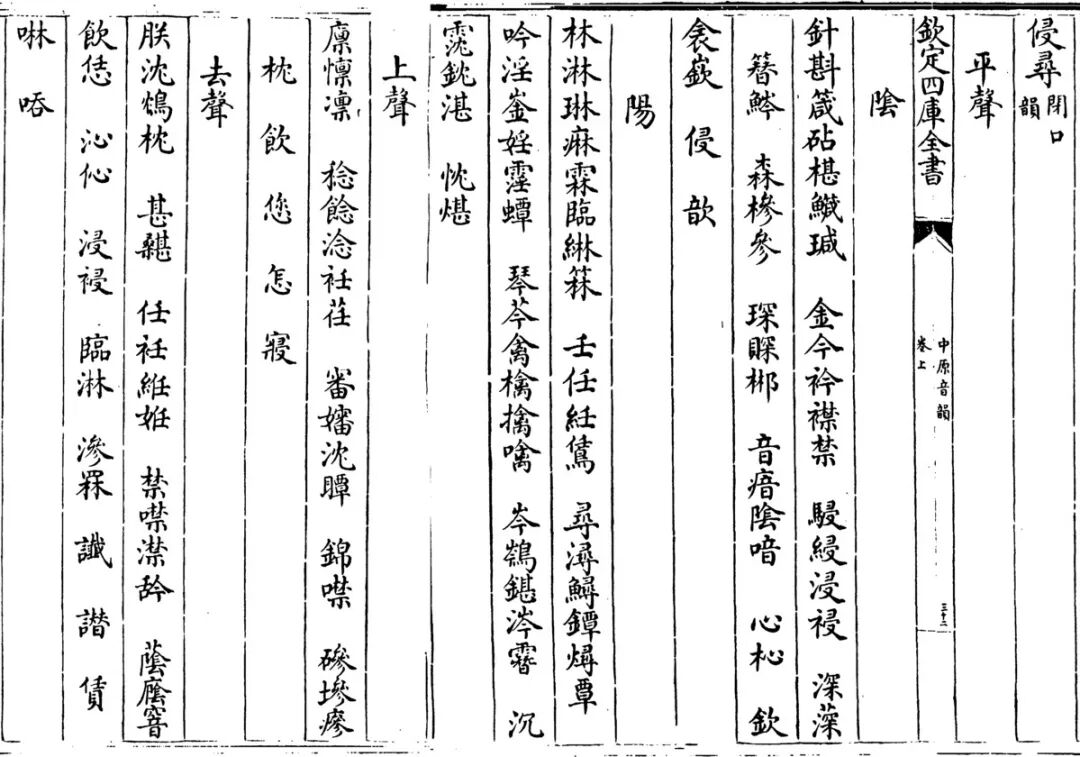 侵尋閉口韻
平聲
欽定四庫全書 中原音韻 卷上 三十二
陰
針斟箴砧椹鱵瑊 金今衿襟禁 駸綅浸祲 深葠
簪鯵 森槮參 琛賝郴 音瘖陰喑 心杺 欽
衾嶔 侵 歆
陽
林淋琳痳霖臨綝箖 壬任紝鵀 尋潯鱘鐔燖蕁
吟淫崟婬霪蟫 琴芩禽檎擒噙 岑鵀鍖涔霫 沉
霃鈂湛 忱煁
上聲
廩懍凜 稔餁淰衽荏 審嬸沈瞫 錦噤 磣墋瘮
枕 飲 您 怎 寢
去聲
朕沈鴆枕 甚葚 任衽絍妊 禁噤澿紟 蔭廕窨
飲恁 沁伈 浸祲 臨淋 滲罧 讖 譖 賃
啉 唔